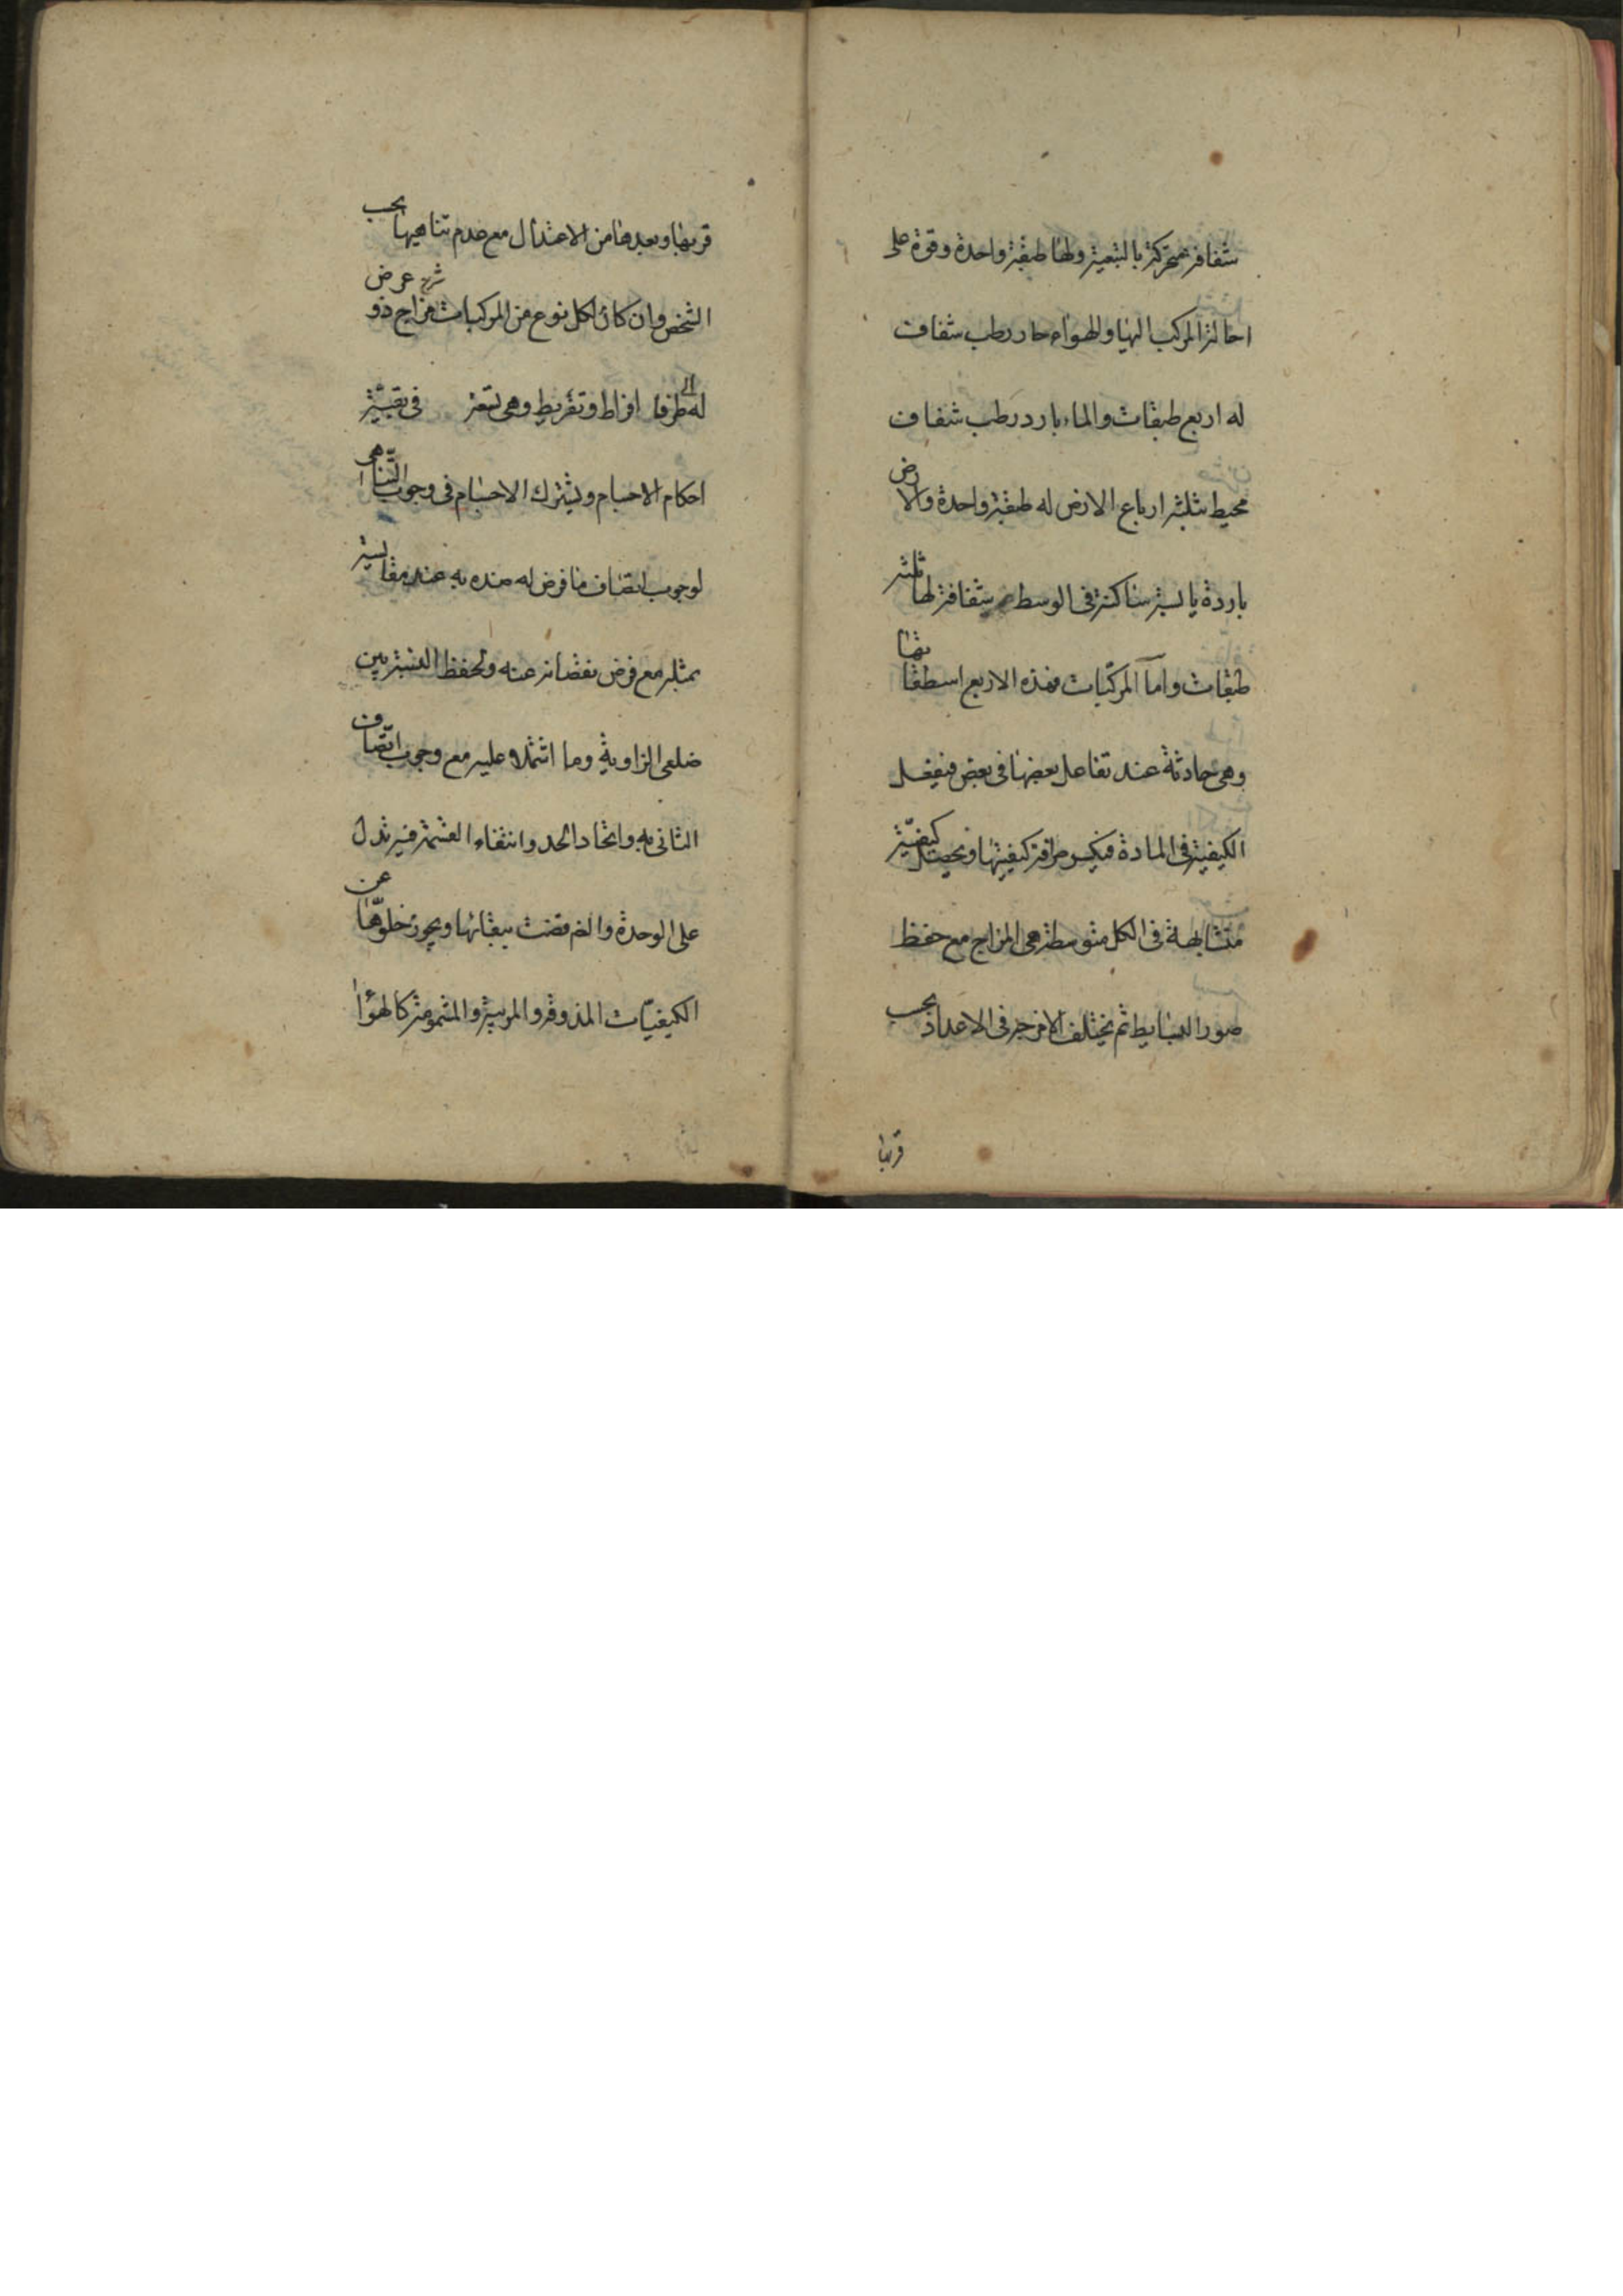 شفافة متحركة بالتبعية ولها طبقة واحدة وقوة على
احالة المركب اليها والهواء حار رطب شفاف
له اربع طبقات والماء بارد رطب شفاف
محيط بثلثة ارباع الارض له طبقة واحدة والارض
باردة يابسة ساكنة فى الوسط شفافة لها ثلثة
طبقات واما المركبات فهذه الاربع اسطقساتها
وهى حادثة عند تفاعل بعضها فى بعض فيفعل
الكيفية فى المادة فيكسر صرافة كيفيتها ويحصل كيفيّة
متشابهة فى الكل متوسطة هى المزاج مع حفظ
صور البسايط ثم يختلف الامزجة فى الاعداد بحسب
قربها
قربها وبعدها من الاعتدال مع عدم تناهيها بحسب
الشخص وان كان لكل نوع من المركبات مزاج ذو عرض
له طرفا افراط وتفريط وهى تسعة فى بقيّة
احكام الاجسام ويشترك الاجسام فى وجوب التّناهى
لوجوب اتصاف ما فرض له ضده به عند مقايسته
بمثله مع فرض نقصانه عنه ولحفظ النسبة بين
ضلعى الزاوية وما اشتملا عليه مع وجوب اتّصاف
الثانى به واتحاد الحد وانتفاء القسمة فيه تدل
على الوحدة والضرورة قضت ببقائها ويجوز خلوّها عن
الكيفيّات المذوقة والمرئية والمشمومة كالهواء